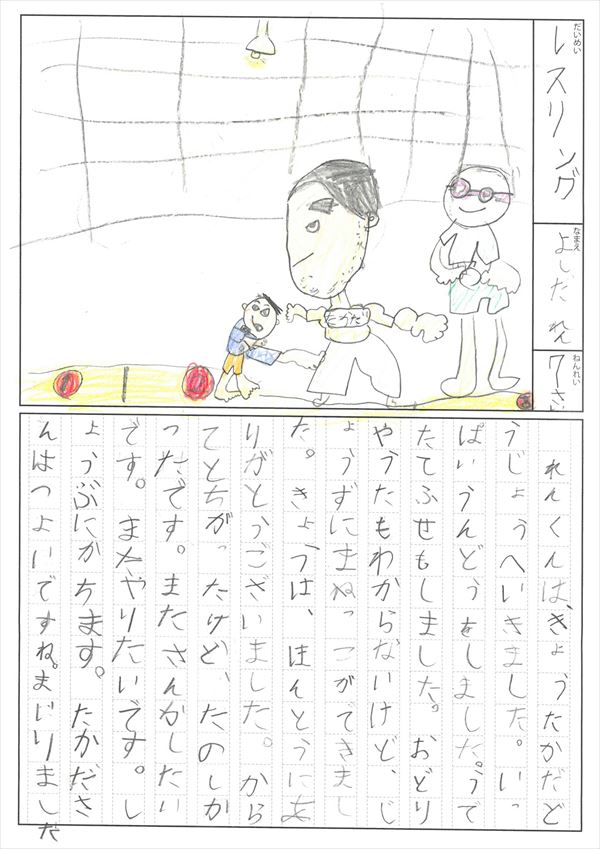 だいめい
レスリング
なまえ
よしだ れん
ねんれい
7さい
たかだ
れんくんは、きょうたかだど
うじょうへいきました。いっ
ぱいうんどうをしました。うで
たてふせもしました。おどり
やうたもわからないけど、じ
ょうずにまねっこができまし
た。きょうは、ほんとうにあ
りがとうございました。から
てとちがったけど、たのしか
ったです。またさんかしたい
です。またやりたいです。し
ょうぶにかちます。たかださ
んはつよいですね。まじりました